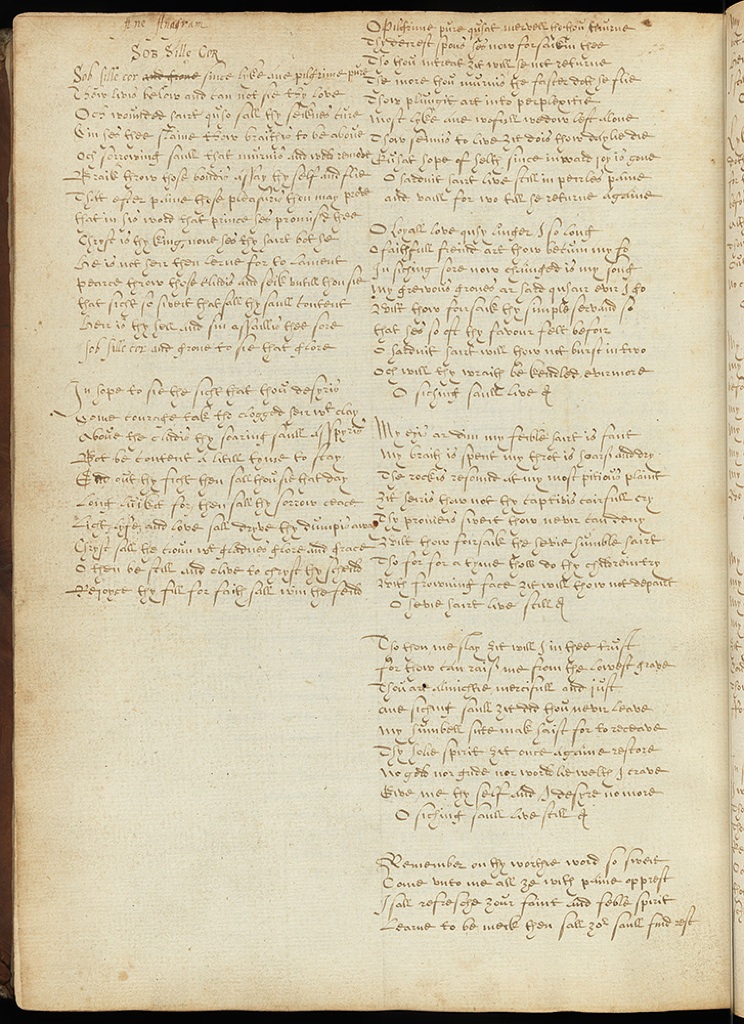 Ane Anagram
Sob Sille Cor
Sob sille cor and grone since lyke ane pilgrime pure
Thow livis below and can not sie thy love
Och wounded hart quho sall thy seiknes cure
hes thee slaine thow braithis to be above
Och sorrowing saull that murnis and remeid
Braik throw those bondis assay thy self and flie
That efter paine those pleasuris thou may preve
that in his word that prince hes promisd thee
Chryst is thy king none hes thy hart bot he
He is not heir then lerne for to lament
pearce throw those cludis and seik untill thou sie
that sicht so sweit that sall thy saull content
Heir is thy hell and sin assaillis thee sore
Sob sille cor and grone to sie that glore
In hope to sie the sicht that thou desyris
Come courage tak tho clogged heir wt clay
Above the cludis thy soaring saull aspyris
Bot be content a litill tyme to stay
out thy ficht then sall thou sie that day
Long luikit for then sall thy sorrow ceace
Licht lyfe and love sall dryve thy dumpis away
Chryst sall the croun wt gladnes glore and grace
O then be still and olive to chryst thy scheild
Rejoyce thy fill for faith sall win the feild
O Pilgrime pure quhat mervell tho thou murne
Thy decrest spous hes now forsakin thee
Tho thou intreat zit will he not returne
The more thou murnis the faster doth he flie
Thow plungit art into perplexitie
Most lyke ane wofull wedow left alone
Thow seimis to live zit dois thow daylie die
Quhat hope of helth since inward joy is gone
O sadnit hart live still in peirles paine
and waill for wo till he returne againe
O Loyall love quhy linger I so long
O faithfull freind art thow becum my fo
In siching sore now chainged is my song
My greivous grones ar sad quhair evir I go
Wilt thow forsaik thy simple servand so
that hes so oft thy favour felt befoir
O sadnit hart will thow not burst in two
Och will thy wraith be kendled evirmore
O siching saull live &
My eyis ar dim my feible hart is faint
My braith is spent my throt is hearsi and dry
The rockis resound at my most pitious plaint
Zit heiris thow not thy captivis cairfull cry
Thy promeis sweit thow nevir can deny
Wilt thow foirsaik the hevie humble hart
Tho for for a tyme thow do thy
With frowning face zit will thow not depairt
O hevie hart live still &
Tho thou me slay zit will I in thee trust
For thow can rais me from the lowest grave
Thou art almichtie mercifull and just
Ane siching saull zit did thou nevir leave
My humbell sute mak haist for to receave
Thy holie spirit zit once againe restore
No gold nor gude nor warldlie welth I crave
Give me thy self and I desyre no more
O siching saull live still &
Remember on thy worthie word so sweit
Come unto me all ze with paine opprest
I sall refresche zour faint and feble spirit
Learne to be meik then sall zor saull find rest